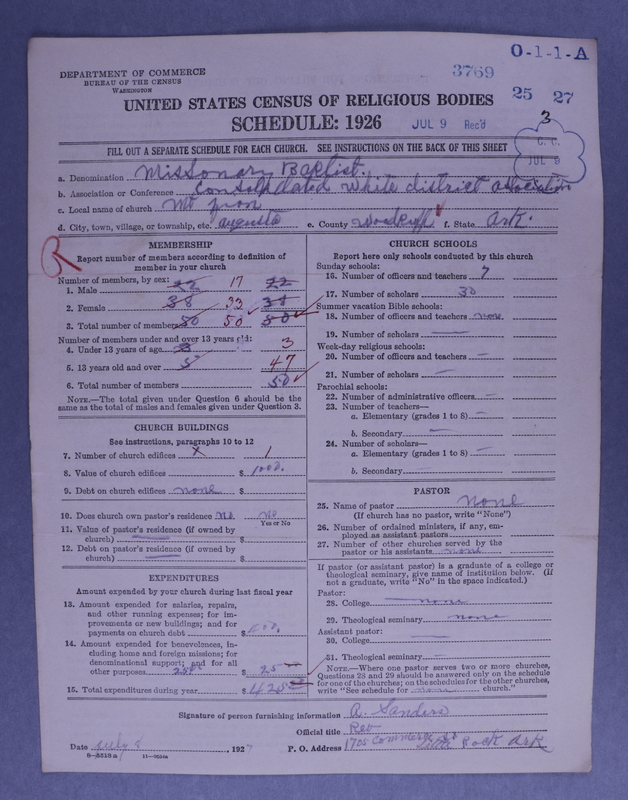 O-1-1-A
DEPARTMENT OF COMMERCE
BUREAU OF THE CENSUS
WASHINGTON
3769
25 27
UNITED STATES CENSUS OF RELIGIOUS BODIES
SCHEDULE: 1926
JUL 9 Rec'd
3
C. C.
JUL 6
FILL OUT A SEPARATE SCHEDULE FOR EACH CHURCH. SEE INSTRUCTIONS ON THE BACK OF THIS SHEET
a. Denomination Missonary Baptist.
b. Association or Conference Consolidated White district association
c. Local name of church Mt zion
d. City, town, village, or township, etc. augusta e. County Woodruff f. State Ark.
R
MEMBERSHIP
Report number of members according to definition of
member in your church
Number of members, by sex:
1. Male 22 17 22
2. Female 38 33 38
3. Total number of members 50 50 50
Number of members under and over 13 years old:
4. Under 13 years of age 3 3
5. 13 years old and over 5 47
6. Total number of members 50
NOTE.—The total given under Question 6 should be
the same as the total of males and females given under Question 3.
CHURCH BUILDINGS
See instructions, paragraphs 10 to 12
7. Number of church edifices x 1
8. Value of church edifices $ 1000.
9. Debt on church edifices none $
10. Does church own pastor's residence No No
Yes or No
11. Value of pastor's residence (if owned by
church) $
12. Debt on pastor's residence (if owned by
church) $
EXPENDITURES
Amount expended by your church during last fiscal year
13. Amount expended for salaries, repairs,
and other running expenses; for im-
provements or new buildings; and for
payments on church debt $
14. Amount expended for benevolences, in-
cluding home and foreign missions; for
denominational support; and for all
other purposes $ 25
15. Total expenditures during year $ 425
CHURCH SCHOOLS
Report here only schools conducted by this church
Sunday schools:
16. Number of officers and teachers 7
17. Number of scholars 30
Summer vacation Bible schools:
18. Number of officers and teachers none
19. Number of scholars —
Week-day religious schools:
20. Number of officers and teachers —
21. Number of scholars —
Parochial schools:
22. Number of administrative officers —
23. Number of teachers—
a. Elementary (grades 1 to 8) —
b. Secondary —
24. Number of scholars—
a. Elementary (grades 1 to 8) —
b. Secondary —
PASTOR
25. Name of pastor none
(If church has no pastor, write "None")
26. Number of ordained ministers, if any, em-
ployed as assistant pastors
27. Number of other churches served by the
pastor or his assistants none
If pastor (or assistant pastor) is a graduate of a college or
theological seminary, give name of institution below. (If
not a graduate, write "No" in the space indicated.)
Pastor:
28. College none
29. Theological seminary none
Assistant pastor:
30. College —
31. Theological seminary —
NOTE.—Where one pastor serves two or more churches,
Questions 28 and 29 should be answered only on the schedule
for one of the churches; on the schedules for the other churches,
write "See schedule for none church."
Signature of person furnishing information A. Sanders
Official title Rev
Date July 5, 1927 P. O. Address 1705 Commerce St Little Rock Ark
6-5518 a